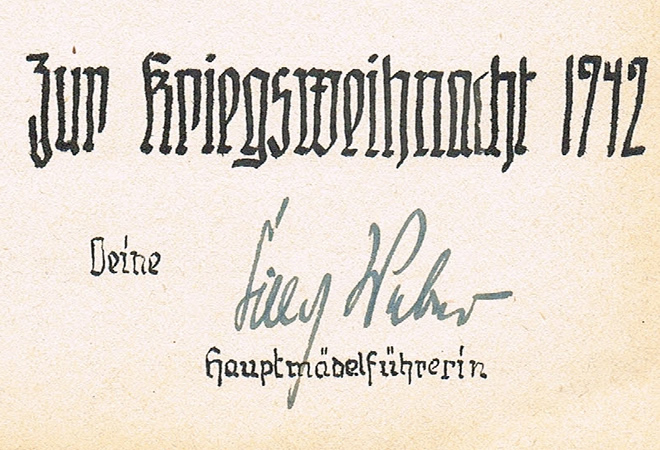 Zur Kriegsweihnacht 1942
Deine
Weber
Hauptmädelführerin